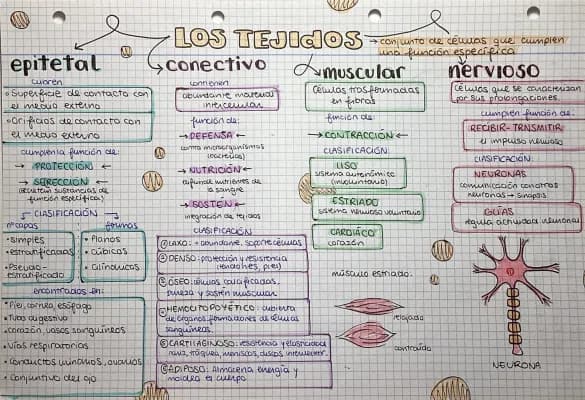 LOS TEJIDOS
conjunto de células que cumplen
una función específica
epitetal
cubren
Superficie de contacto con
el medio externo
Orificios de contacto con
el medio externo
cumplen la función de:
PROTECCIÓN
SECRECIÓN
(secretan sustancias de
función específica)
CLASIFICACIÓN
nº capas
formas
Simples
estratificadas
Pseudo-
estratificado
Planos
Cúbicos
Cilíndricos
encontrados en:
Piel, cornea, esófago
Tubo digestivo
corazón, vasos sanguíneos
Vías respiratorias
Conductos urinarios, ovarios
Conjuntivo del ojo
conectivo
contienen
abundante material
intercelular
función de:
DEFENSA
contra microorganismos
(bacterias)
NUTRICIÓN
nutrientes de
la sangre
SOSTEN
integración de tejidos
CLASIFICACIÓN
LAXO: abundante, soporte células
DENSO: protección y resistencia
(tendones, piel)
ÓSEO: células calcificadas,
dureza y sostén muscular
HEMOCITOPOYÉTICO: cubierta
de órganos formadores de células
sanguíneas.
CARTILAGINOSO: resistencia y elasticidad
nariz, tráquea, meniscos, discos
ADIPOSO: Almacena energía y
moldea el cuerpo
muscular
Células trasformadas
en fibras
función de:
CONTRACCIÓN
CLASIFICACIÓN:
LISO
sistema autonómico
(involuntario)
ESTRIADO
sistema nervioso voluntario
CARDIÁCO
corazón
músculo estriado:
relajado
contraído
nervioso
Células que se caracterizan
por sus prolongaciones.
cumplen función de:
RECIBIR-TRNSMITIR
el impulso nervioso
CLASIFICACIÓN:
NEURONAS
comunicación con otras
neuronas → sinapsis
GLÍAS
regula actividad neuronal
NEURONA